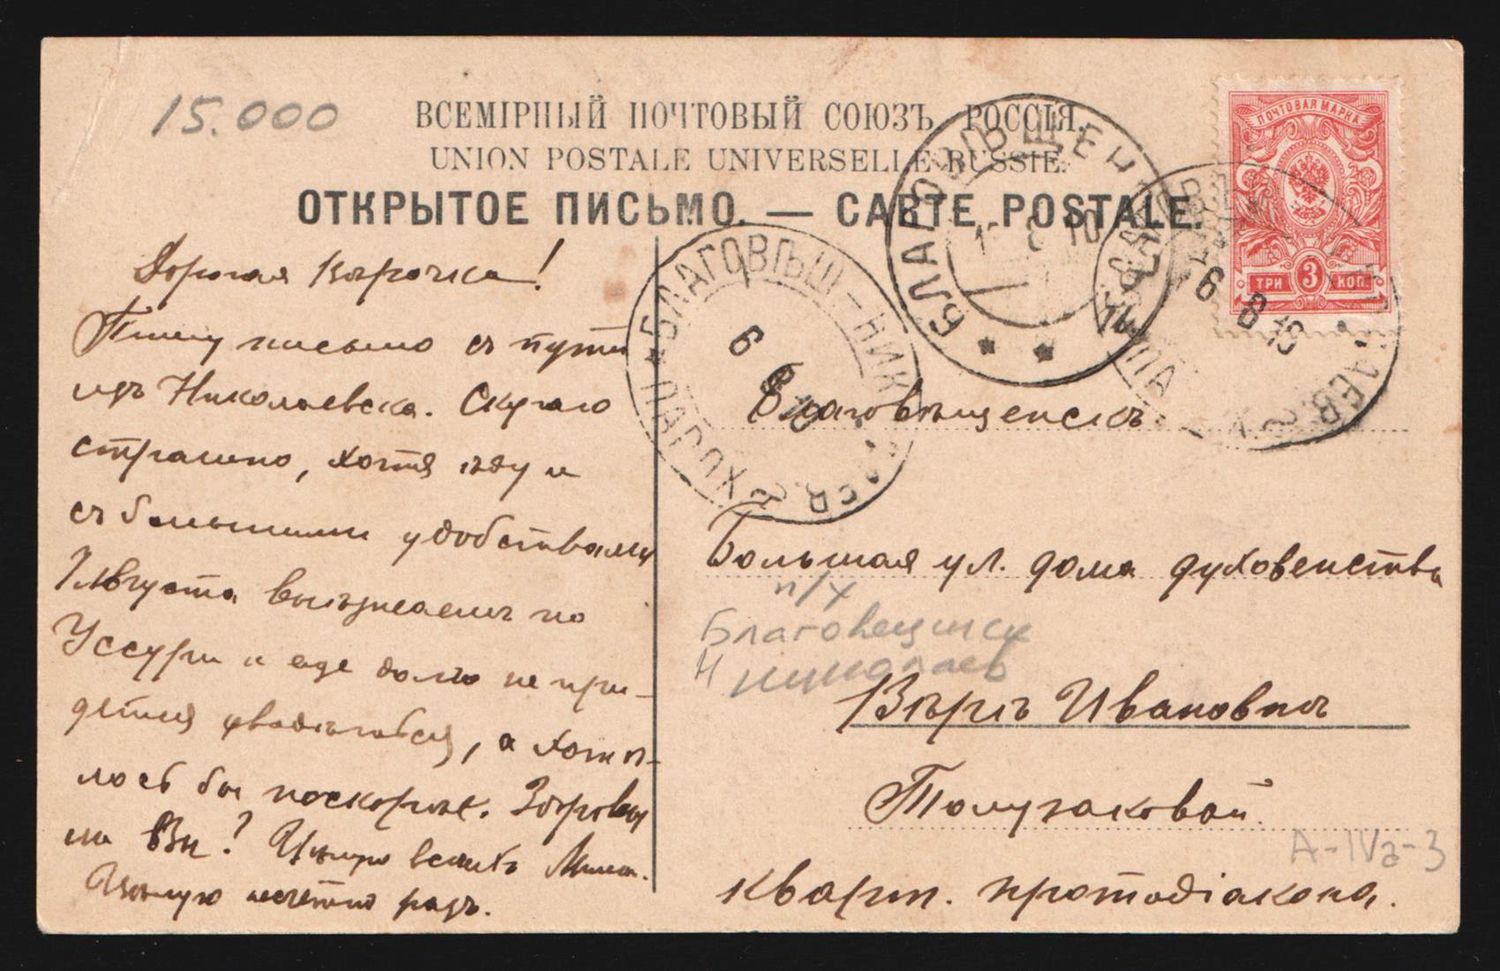 15.000
ВСЕМІРНЫЙ ПОЧТОВЫЙ СОЮЗЪ. РОССІЯ.
UNION POSTALE UNIVERSELLE RUSSIE.
ОТКРЫТОЕ ПИСЬМО. — CARTE POSTALE.
ПОЧТОВАЯ МАРКА
ТРИ 3 КОП.
БЛАГОВѢЩЕН
10
БЛАГОВѢЩ-НИК ЛАЕВ. ПАРОХ
6 8 10
6 8 10
Дорогая Вѣрочка!
Пишу письмо съ пути
изъ Николаевска. Скучаю
страшно, хотя ѣду и
съ большими удобствами
Августа выѣзжаемъ по
Уссури и еще долго не при-
дется увидѣться, а хотѣ-
лось бы поскорѣе. Здоровы
ли Вы? Цѣлую всѣхъ
Цѣлую несчетно разъ.
Благовѣщенскъ
Большая ул. дома духовенства
п/х
Благовещенск
Н Николаев
Вѣрѣ Ивановнѣ
кварт. протодіакона.
A-IVa-3